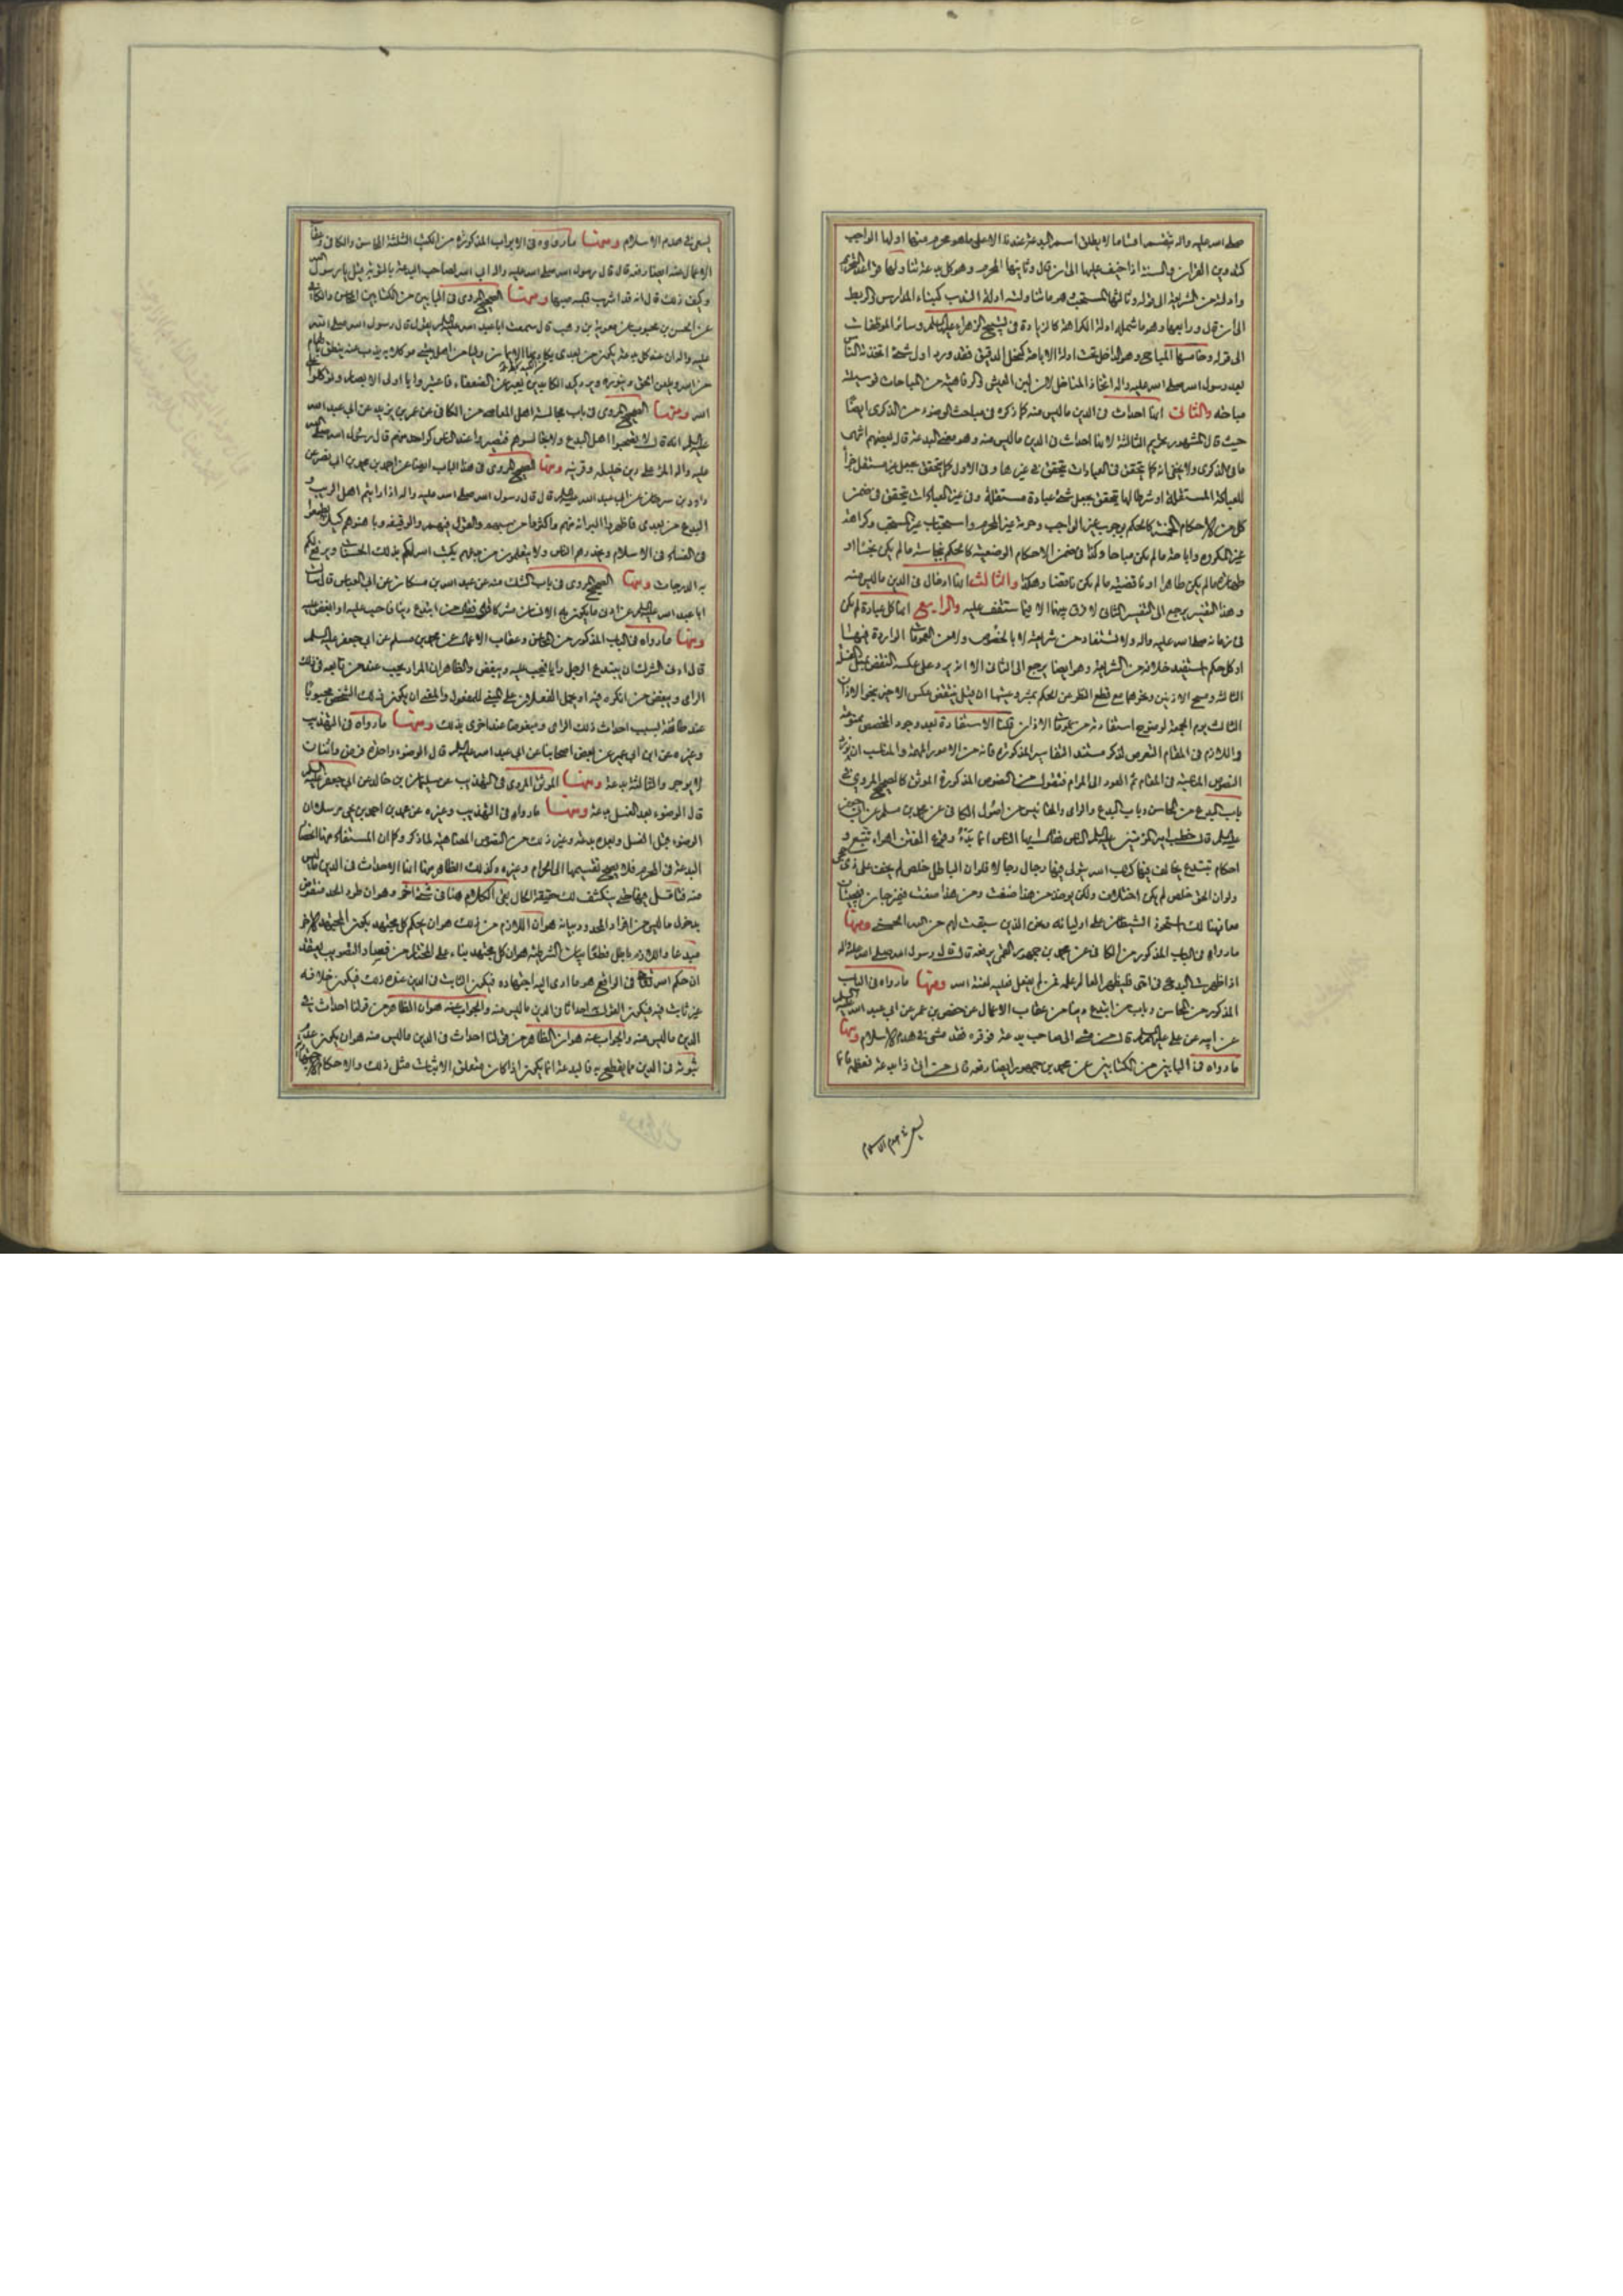 صلى الله عليه واله تنقسم اقساما لا يطلق اسم البدعة عندنا الا على ما هو محرم منها اولها الواجب
كتدوين القرآن والسنة اذا خيف عليهما الى ان قال وثانيها المحرم وهو كل بدعة تناولها قواعد التحريم
وادلته من الشريعة الى قوله وثالثها المستحب وهو ما تناولته ادلة الندب كبناء المدارس والربط
الى ان قال ورابعها وهو ما شملته ادلة الكراهة كالزيادة في تسبيح الزهراء عليها السلم وسائر الموظفات
الى قوله وخامسها المباح وهو الداخل تحت ادلة الاباحة كنخل الدقيق فقد ورد اول شئ اتخذته الناس
بعد رسول الله صلى الله عليه واله اتخاذ المناخل لان لين العيش والرفاهية من المباحات فوسيلته
مباحة والثاني انها احداث في الدين ما ليس منه كما ذكره في مباحث الوضوء من الذكرى ايضا
حيث قال المشهور تحريم الثالثة لانها احداث في الدين ما ليس منه وهو معنى البدعة قال بعضهم انتهى
ما في الذكرى ولا يخفى انه كما يتحقق في العبادات يتحقق في غيرها وفي الاول كما يتحقق بجعل غير مستقل جزأ
للعبادة المستقلة او شرطا لها يتحقق بجعل شئ عبادة مستقلة وفي غير العبادات يتحقق في ضمن
كل من الاحكام الخمسة كالحكم بوجوب غير الواجب وحرمة غير المحرم واستحباب غير المستحب وكراهة
غير المكروه واباحة ما لم يكن مباحا وكذا في ضمن الاحكام الوضعية كالحكم بنجاسة ما لم يكن نجسا او
طهارة ما لم يكن طاهرا او ناقضية ما لم يكن ناقضا وهكذا والثالث انها ادخال في الدين ما ليس منه
وهذا التفسير يرجع الى التفسير الثاني لا فرق بينهما الا فيما ستقف عليه والرابع انها كل عبادة لم يكن
في زمانه صلى الله عليه واله ولا تستفاد من شريعته لا بالخصوص ولا من العمومات الواردة فيها
او كل حكم استفيد خلافه من الشريعة وهو ايضا يرجع الى الثاني الا انه يرد على عكسه النقض بمثل الغسل
الثالث ومسح الاذنين ونحوهما مع قطع النظر عن الحكم بمشروعيتها
الثالث يوم الجمعة لوضوح استفادته من عمومات الاذان قلنا الاستفادة بعد وجود المخصص ممنوعة
واللازم في المقام التعرض لذكر مستند التفاسير المذكورة فانه من الامور المهمة والمناسب ان نورد
النصوص المناسبة في المقام ثم العود الى المرام فنقول من النصوص المذكورة الموثق كالصحيح المروي في
باب البدع من المحاسن وباب البدع والراى والمقائيس من اصول الكافي عن محمد بن مسلم عن ابي جعفر
عليه السلم قال خطب امير المؤمنين عليه السلم الناس فقال ايها الناس انما بدء وقوع الفتن اهواء تتبع و
احكام تبتدع يخالف فيها كتاب الله يتولى فيها رجال رجالا فلو ان الباطل خلص لم يخف على ذي حجى
ولو ان الحق خلص لم يكن اختلاف ولكن يوخذ من هذا ضغث ومن هذا ضغث فيمزجان فيجيئان
معا فهنالك استحوذ الشيطان على اوليائه ونجى الذين سبقت لهم من الله الحسنى ومنها
ما رواه في الباب المذكور من الكافي عن محمد بن جمهور العمي يرفعه قال قال رسول الله صلى الله عليه واله
اذا ظهرت البدع في امتي فليظهر العالم علمه فمن لم يفعل فعليه لعنة الله ومنها ما رواه في الباب
المذكور من المحاسن وباب من ابتدع دينا من عقاب الاعمال عن حفص بن عمر عن ابي عبد الله عليه السلم
عن ابيه عن علي عليه السلم قال من مشى الى صاحب بدعة فوقره فقد مشى في هدم الاسلام ومنها
ما رواه في البابين من الكتابين عن محمد بن جمهور ايضا رفعه قال من اتى ذا بدعة فعظمه فانما
يسعى في هدم الاسلام
يسعى في هدم الاسلام ومنها ما رواه في الابواب المذكورة من الكتب الثلثة المحاسن والكافي وعقاب
الاعمال عنه ايضا رفعه قال قال رسول الله صلى الله عليه واله ابى الله لصاحب البدعة بالتوبة قيل يا رسول الله
وكيف ذلك قال انه قد اشرب قلبه حبها ومنها الصحيح المروي في البابين من الكتابين المحاسن والكافي
عن الحسن بن محبوب عن معوية بن وهب قال سمعت ابا عبد الله عليه السلم يقول قال رسول الله صلى الله
عليه واله ان عند كل بدعة يكون من بعدي يكاد بها الايمان وليا من اهل بيتي موكلا به يذب عنه ينطق بالهام
من الله ويعلن الحق وينوره ويرد كيد الكائدين يعبر عن الضعفاء فاعتبروا يا اولي الابصار وتوكلوا على
الله ومنها الصحيح المروي في باب مجالسة اهل المعاصي من الكافي عن عمر بن يزيد عن ابي عبد الله
عليه السلم انه قال لا تصحبوا اهل البدع ولا تجالسوهم فتصيروا عند الناس كواحد منهم قال رسول الله صلى الله
عليه واله المرء على دين خليله وقرينه ومنها الصحيح المروي في هذا الباب ايضا عن احمد بن محمد بن ابي نصر عن
داود بن سرحان عن ابي عبد الله عليه السلم قال قال رسول الله صلى الله عليه واله اذا رايتم اهل الريب و
البدع من بعدي فاظهروا البرائة منهم واكثروا من سبهم والقول فيهم والوقيعة وباهتوهم كيلا يطمعوا
في الفساد في الاسلام ويحذرهم الناس ولا يتعلمون من بدعهم يكتب الله لكم بذلك الحسنات ويرفع لكم
به الدرجات ومنها الصحيح المروي في باب الشك منه عن عبد الله بن مسكان عن ابي العباس قال سالت
ابا عبد الله عليه السلم عن ادنى ما يكون به الانسان مشركا قال فقال من ابتدع رايا فاحب عليه او ابغض عليه
ومنها ما رواه في الباب المذكور من المحاسن وعقاب الاعمال عن محمد بن مسلم عن ابي جعفر عليه السلم
قال ادنى الشرك ان يبتدع الرجل رايا فيحب عليه ويبغض والظاهر ان المراد يحب عنده من تابعه في ذلك
الراى ويبغض من انكره فيه او يجعل الفعلان على هيئة المفعول والمعنى ان يكون ذلك الشخص محبوبا
عند طائفة بسبب احداث ذلك الراى ومبغوضا عند اخرى بذلك ومنها ما رواه في التهذيب
وغيره عن ابن ابي عمير عن بعض اصحابنا عن ابي عبد الله عليه السلم قال الوضوء واحدة فرض واثنتان
لا يوجر والثالثة بدعة ومنها الموثق المروي في التهذيب عن سليمان بن خالد عن ابي جعفر عليه السلم
قال الوضوء بعد الغسل بدعة ومنها ما رواه في التهذيب وغيره عن محمد بن احمد بن يحيى مرسلا ان
الوضوء قبل الغسل وبعده بدعة وغير ذلك من النصوص المضاهية لما ذكر وكما ان المستفاد منها اختصاص
البدعة في المحرم فلا يصح تقسيمها الى الحرام وغيره وكذلك الظاهر منها انها الاحداث في الدين ما ليس
منه فتامل فيها حتى ينكشف لك حقيقة الحال بقي الكلام هنا في شئ اخر وهو ان طرد الحد منتقض
بدخول ما ليس من افراد المحدود وبيانه هو ان اللازم من ذلك هو ان يحكم كل مجتهد بكون المجتهد الاخر
مبدعا واللازم باطل قطعا بيان الشرطية هو ان كل مجتهد بناء على المختار من فساد التصويب يعتقد
ان حكم الله تعالى في الواقع هو ما ادى اليه اجتهاده فيكون الثابت في الدين عنده ذلك فيكون خلافه
غير ثابت فيه فيكون القول به احداثا في الدين ما ليس منه والجواب عنه هو ان الظاهر من قولنا احداث في
الدين ما ليس منه والجواب عنه هو ان الظاهر من قولنا احداث في الدين ما ليس منه هو ان يكون عدم
ثبوته في الدين مما يقطع به فالبدعة انما يكون اذا كان متعلق الاثبات مثل ذلك والاحكام الاجتهادية